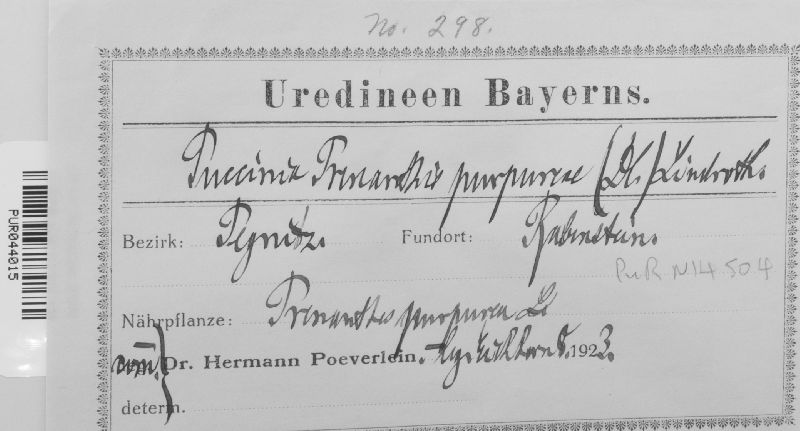 No. 298.
Uredineen Bayerns.
Puccinia Prenanthis purpureae (DC.) Lindroth.
Bezirk: Pegnitz. Fundort: Rabenstein.
PUR N14504
Nährpflanze: Prenanthes purpurea L.
Dr. Hermann Poeverlein. 8. 1923.
determ.
PUR044015